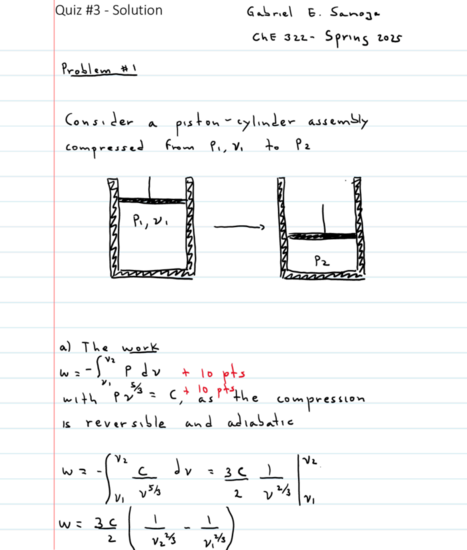 Quiz #3 - Solution
Gabriel E. Sanoja
ChE 322 - Spring 2025
Problem #1
Consider a piston-cylinder assembly
compressed from P₁, v₁ to P₂
P₁, v₁
P₂
a) The work
w = -∫_{v₁}^{v₂} P dv + 10 pts
with Pv^{5/3} = C, + 10 pts as the compression
is reversible and adiabatic
w = -∫_{v₁}^{v₂} C/v^{5/3} dv = 3C/2 1/v^{2/3} |_{v₁}^{v₂}
w = 3C/2 (1/v₂^{2/3} - 1/v₁^{2/3})